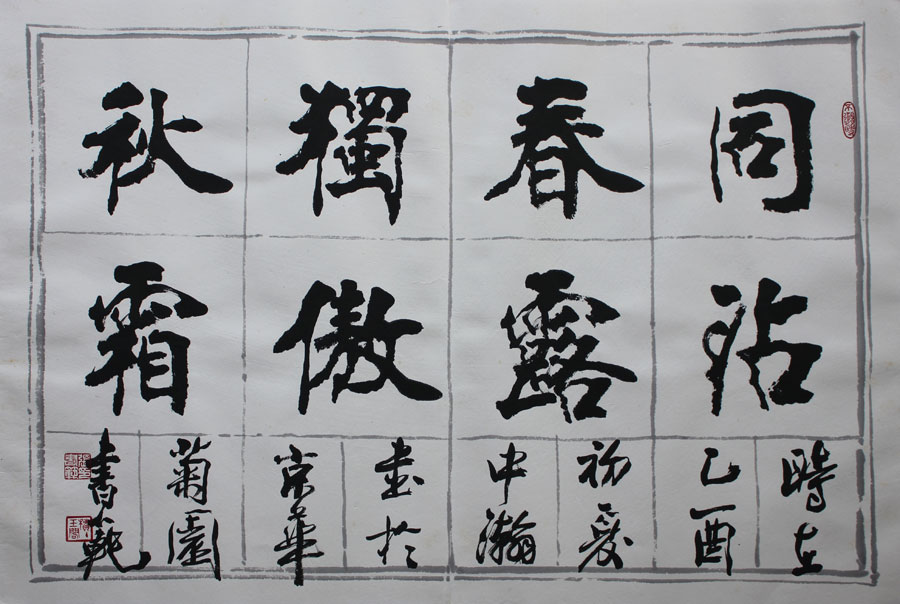 同沾
春露
獨傲
秋霜
時在
乙酉
初夏
中瀚
書於
京華
菊園
書範